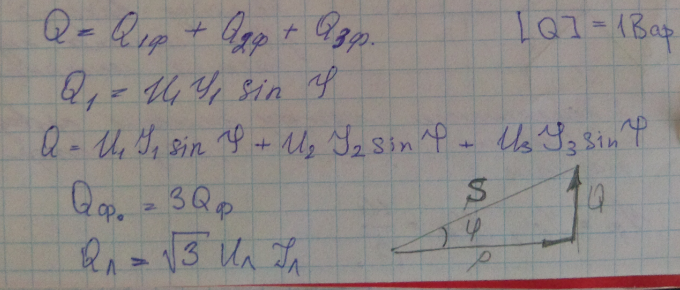 Q = Q₁ф + Q₂ф + Q₃ф. [Q] = 1Вар
Q₁ = U₁ I₁ sin φ
Q = U₁ I₁ sin φ + U₂ I₂ sin φ + U₃ I₃ sin φ
Qф. = 3Qф
Qл = √3 Uл Iл
S
Q
φ
P